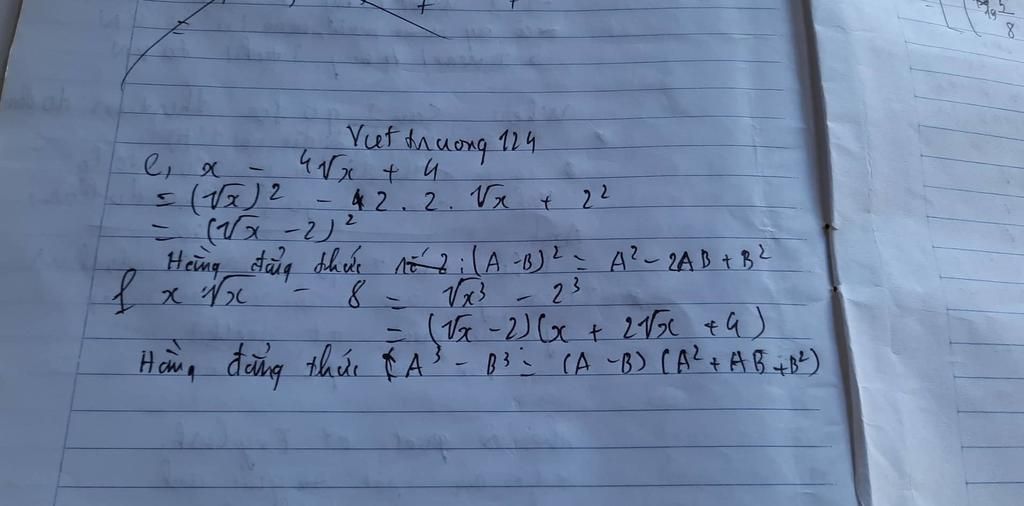 Viettruong 124
e, x - 4√x + 4
= (√x)² - 2 . 2 . √x + 2²
= (√x - 2)²
Hằng đẳng thức số 2 : (A - B)² = A² - 2AB + B²
f x √x - 8 = √x³ - 2³
= (√x - 2) (x + 2√x + 4)
Hằng đẳng thức A³ - B³ = (A - B) (A² + AB + B²)